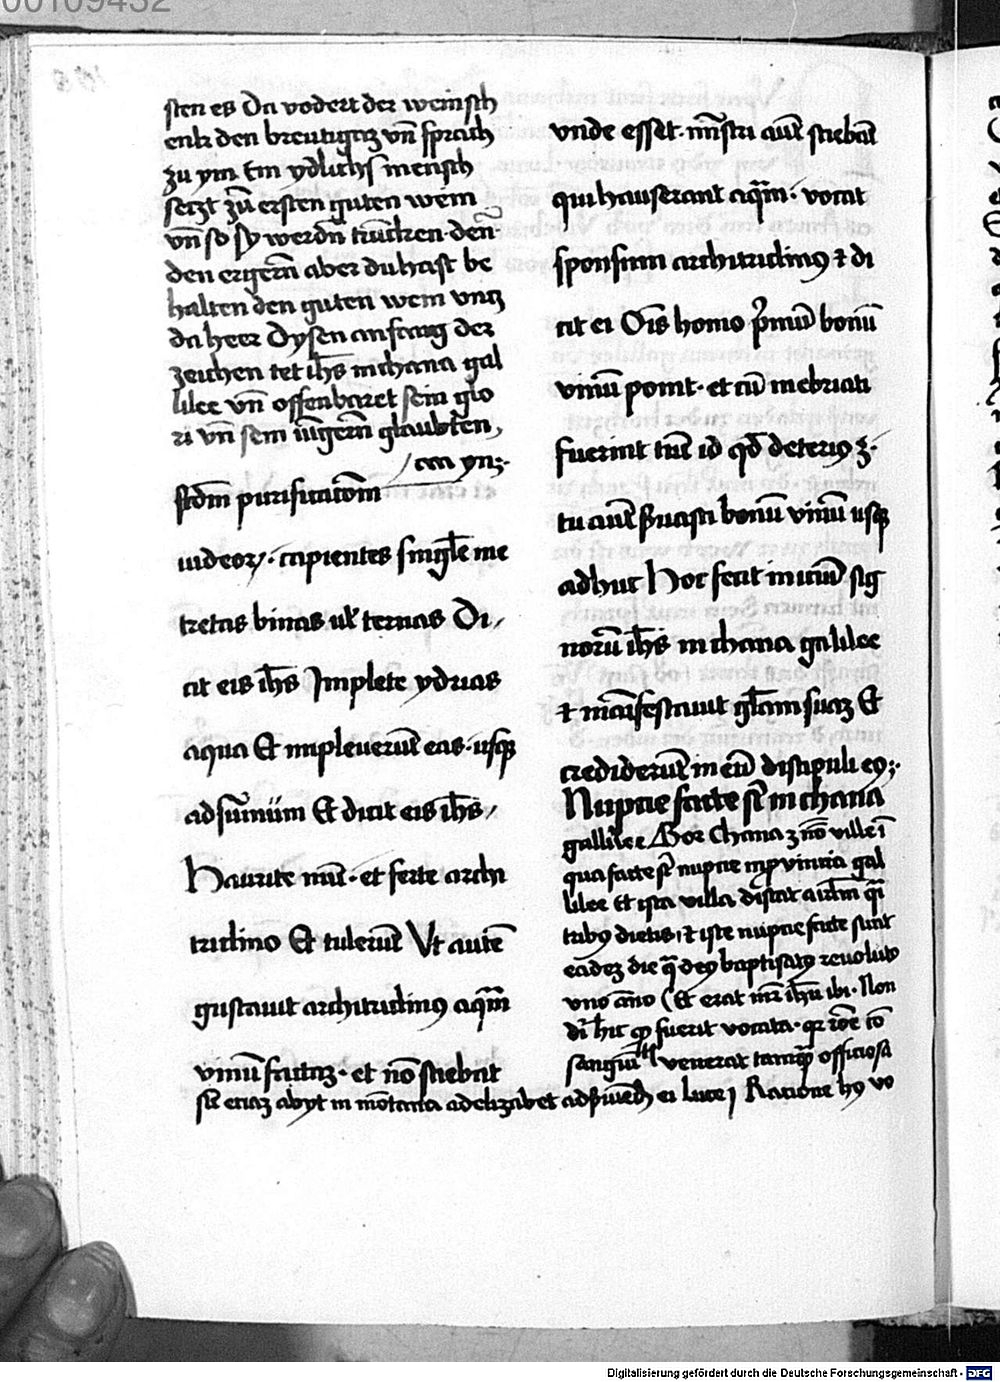 00109432
sten es Da vodert der weinsch
enk den breutigaz vn̄ sprach
zu ym Ein ydlichs mensch
setzt zū ersten guten wein
vn̄ so sy werdn̄ trūcken den̄
den ergern̄ aber du hast be
halten den guten wein vncz
da heer Dysen anfang der
zeichen tet ih̄s in chana gal
lilee vn̄ offenbaret sein glo
ri vn̄ sein iūgern̄ glaubtē
an yn
scd̄m purificatiōm
iudeoꝝ capientes singl̄e me
tretas binas ul̓ ternas Di
cit eis ih̄s Implete ydrias
aqua Et impleverūt eas usqꝫ
ad sūmum Et dicit eis ih̄s
Haurite nūc et ferte archi
triclino Et tulerūt Ut autē
gustavit architriclinꝰ aquā
vinū factaꝫ et nō sciebat
vnde esset mīstri autē sciebāt
qui hauserant aquā vocat
sponsum architriclinꝰ ⁊ di
cit ei Oīs homo p̄mū bonū
vinū ponit et cū inebriati
fuerint tūc id qd̄ deteriꝰ ꝫ
tu autē ẜuasti bonū vinū usqꝫ
adhuc Hoc fecit iniciū sig
norū ih̄s in chana galilee
⁊ māifestavit gl̄am suaꝫ Et
crediderūt in eū discipuli eꝰ
Nupcie facte sūt in chana
gallilee Hoc Chana ꝫ nō ville ī
qua facte sūt nupcie in ꝓvincia gal
lilee Et ista villa distat a ihrlm̄ q̄i
tribꝰ dietis ⁊ iste nupcie facte sunt
eadeꝫ die q̄ dn̄s baptisatꝰ revoluto
uno anno (Et erat mr̄ ih̄u ibi Non
dr̄ hic ꝙ fuerit vocata qꝛ rōe cō
sanguītatis venerat tamꝙ officiosa
sic eciaꝫ abyt in mōtana ad elizabet ad ẜviend̄ ei luce j Ratione hꝰ vo
Digitalisierung gefördert durch die Deutsche Forschungsgemeinschaft - DFG